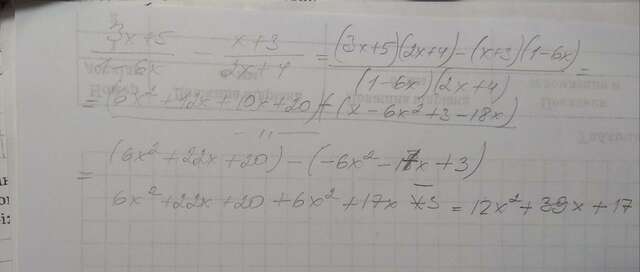 (3x+5)/(1-6x) - (x+3)/(2x+4) = ((3x+5)(2x+4)-(x+3)(1-6x))/((1-6x)(2x+4)) =
= (6x²+12x+10x+20)-(x-6x²+3-18x)
-//-
= (6x²+22x+20)-(-6x²-17x+3)
6x²+22x+20+6x²+17x-3 = 12x²+39x+17